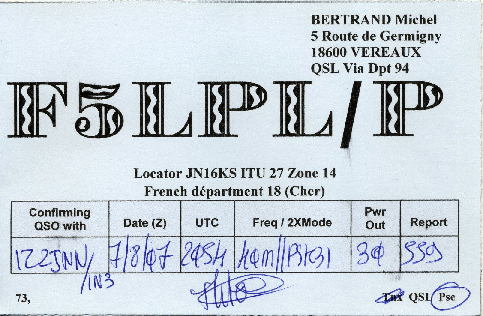 BERTRAND Michel
5 Route de Germigny
18600 VEREAUX
QSL Via Dpt 94
F5LPL/P
Locator JN16KS ITU 27 Zone 14
French départment 18 (Cher)
Confirming QSO with Date (Z) UTC Freq / 2XMode Pwr Out Report
IZ2JNN/IN3 7/8/07 2054 40m//PSK31 30 559
73, Tnx QSL Pse